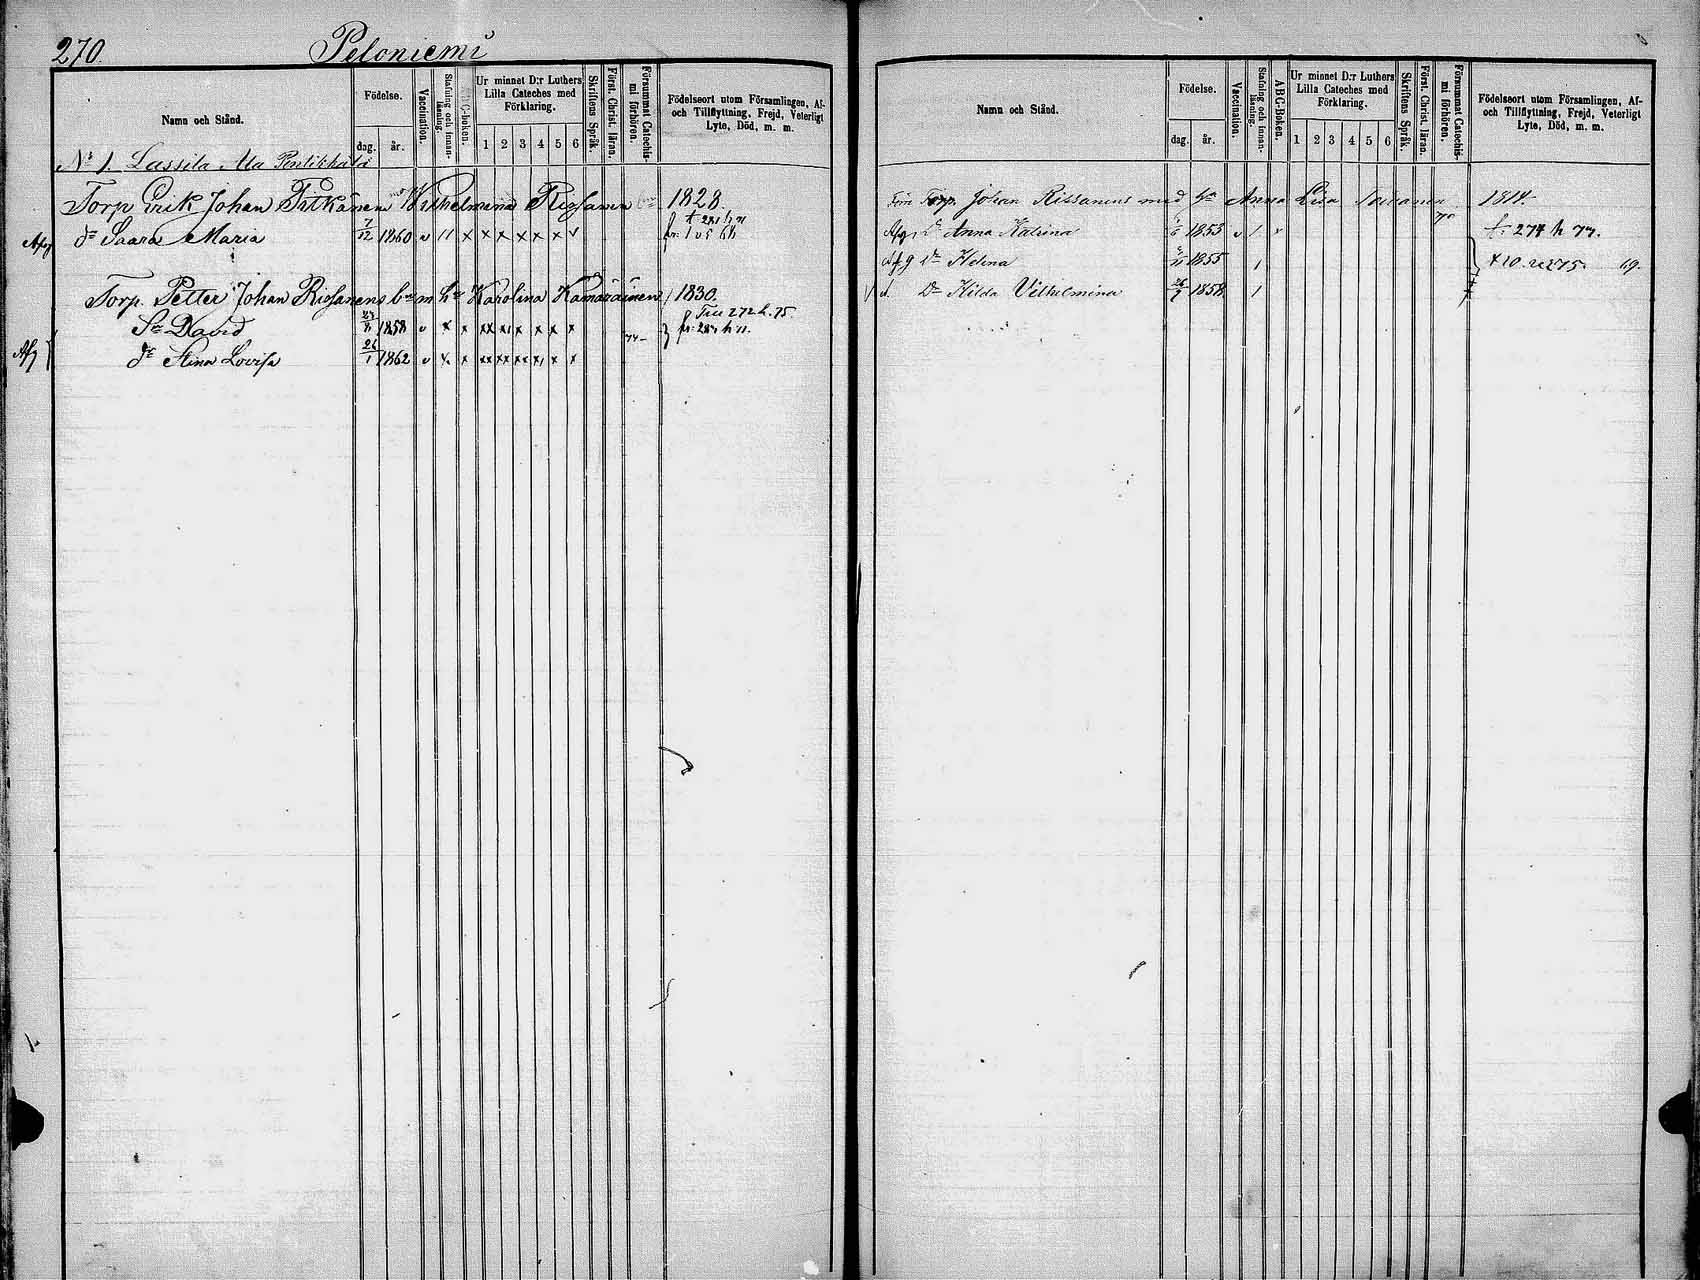 270. Peloniemi
Namn och Stånd.
Födelse.
dag. år.
Vaccination.
Stafning och innanläsning.
ABC-boken.
Ur minnet D:r Luthers Lilla Cateches med Förklaring.
1 2 3 4 5 6
Skriftens Språk.
Först. Christ. läran.
Försummat Catechismi förhören.
Födelseort utom Församlingen, Af- och Tillflyttning, Frejd, Veterligt Lyte, Död, m. m.
No 1. Lassila Ala Pentikkälä
Torp Erik Johan Pitkänen Wilhelmina Rissanen 1828.
Afg dr Saara Maria 7/12 1860 v 11 x x x x x x v
Torp. Petter Johan Rissanens m hu Karolina Kamäräinen 1830.
Till 272 h. 75.
Sn David 1858 v x x xx x x x x x
Afg dr Stina Lovisa 26/1 1862 v x x xx xx xx x x x
Namn och Stånd.
Födelse.
dag. år.
Vaccination.
Stafning och innanläsning.
ABC-boken.
Ur minnet D:r Luthers Lilla Cateches med Förklaring.
1 2 3 4 5 6
Skriftens Språk.
Först. Christ. läran.
Försummat Catechismi förhören.
Födelseort utom Församlingen, Af- och Tillflyttning, Frejd, Veterligt Lyte, Död, m. m.
Torp. Johan Rissanens med Anna Lisa 1814.
Afg Dr Anna Katrina 1853 v 1 274 h 77.
Afg Dr Helena 1855 1
d. Dr Hilda Vilhelmina 1858 1